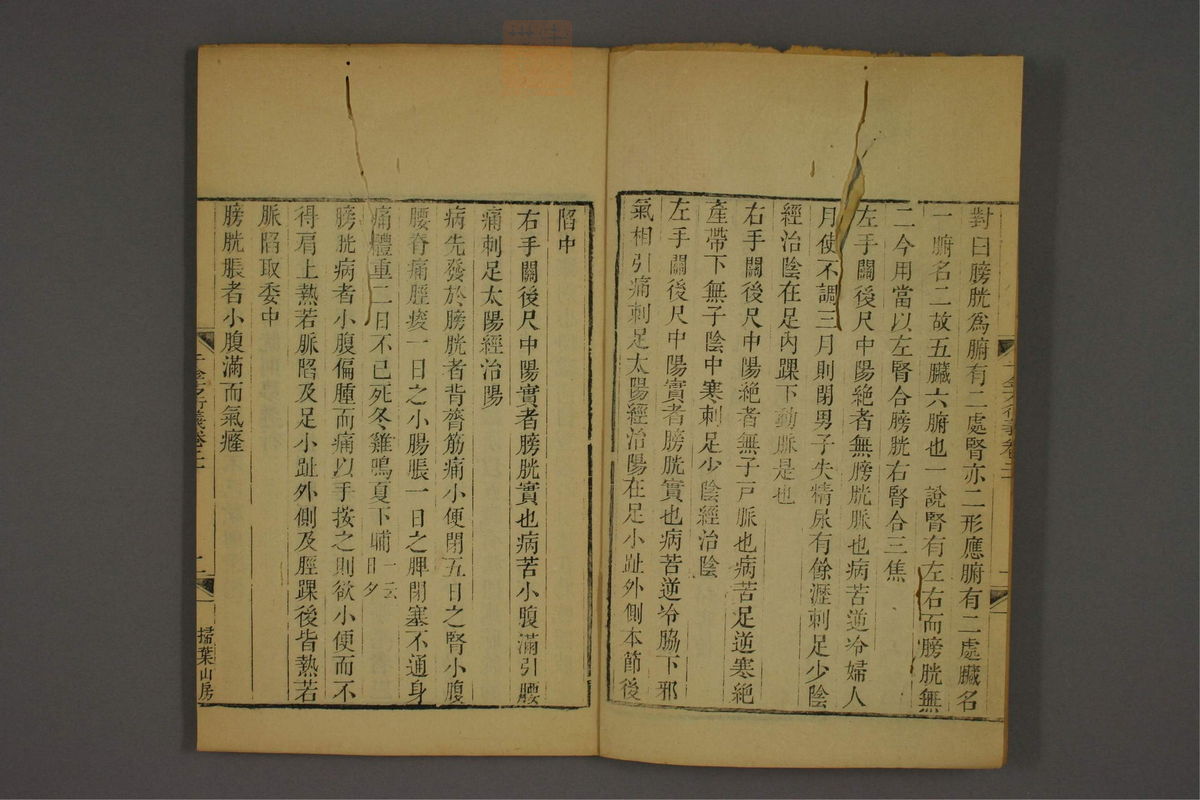 對曰膀胱爲腑有二處腎亦二形應腑有二處臟名
一腑名二故五臟六腑也一說腎有左右而膀胱無
二今用當以左腎合膀胱右腎合三焦
左手關後尺中陽絕者無膀胱脈也病苦逆冷婦人
月使不調三月則閉男子失精尿有餘瀝刺足少陰
經治陰在足內踝下動脈是也
右手關後尺中陽絕者無子戸脈也病苦足逆寒絕
產帶下無子陰中寒刺足少陰經治陰
左手關後尺中陽實者膀胱實也病苦逆冷脇下邪
氣相引痛刺足太陽經治陽在足小趾外側本節後
陷中
右手關後尺中陽實者膀胱實也病苦小腹滿引腰
痛刺足太陽經治陽
病先發於膀胱者背膂筋痛小便閉五日之腎小腹
腰脊痛脛痠一日之小腸脹一日之脾閉塞不通身
痛體重二日不已死冬雞鳴夏下晡一云日夕
膀胱病者小腹偏腫而痛以手按之則欲小便而不
得肩上熱若脈陷及足小趾外側及脛踝後皆熱若
脈陷取委中
膀胱脹者小腹滿而氣癃
千金方衍義卷二十
二
掃葉山房